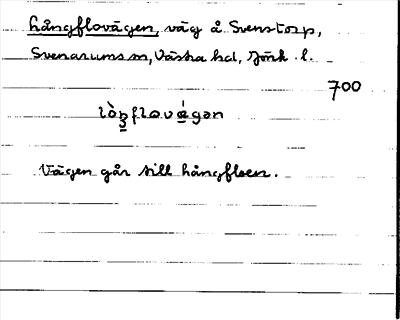 Långflovägen, väg å Svenstorp,
Svenarums sn, Västra hd, Jönk. l.
700
lòŋflová̱gən
Vägen går till Långfloen.